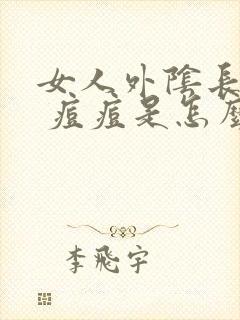 女人外陰長
痘痘是怎麼
李飛宇